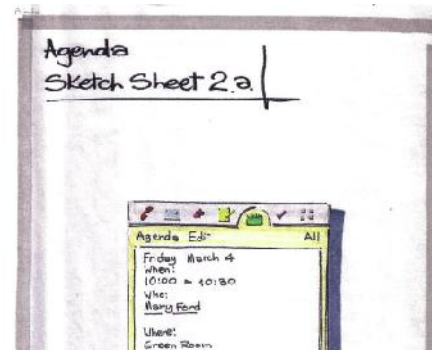 Agenda
Sketch Sheet 2.a.
Agenda Edit All
Friday March 4
When:
10:00 - 10:30
Who:
Mary Ford
Where:
Green Room